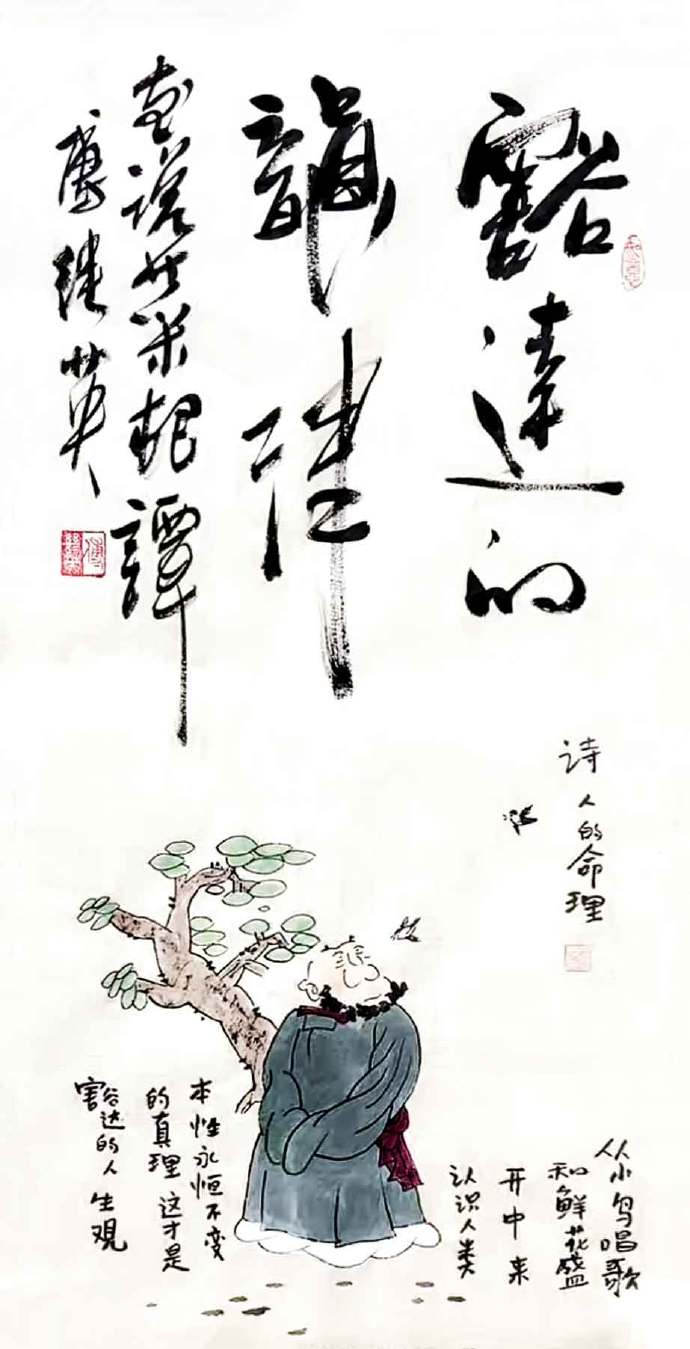 豁達的
韻律
画说菜根譚
傅继英
诗人的命理
从小鸟唱歌
和鲜花盛
开中来
认识人类
本性永恒不变
的真理这才是
豁达的人生观